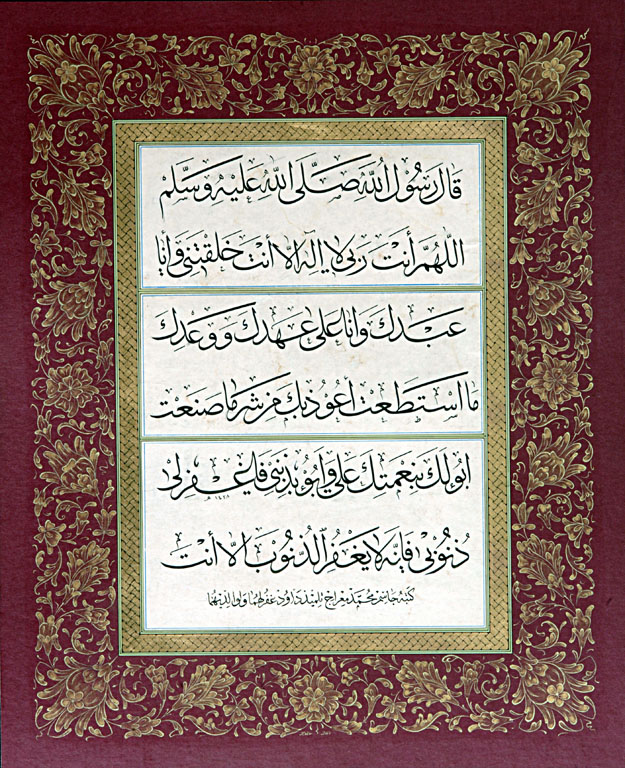 قال رسول الله صلى الله عليه وسلم
اللهم أنت ربي لا إله إلا أنت خلقتني وأنا
عبدك وأنا على عهدك ووعدك
ما استطعت أعوذ بك من شر ما صنعت
ابوء لك بنعمتك علي وأبوء بذنبي فاغفر لي
ذنوبي فإنه لا يغفر الذنوب إلا أنت
كتبه جاسم محمد معراج تلميذ داود غفر لهما ولوالديهما